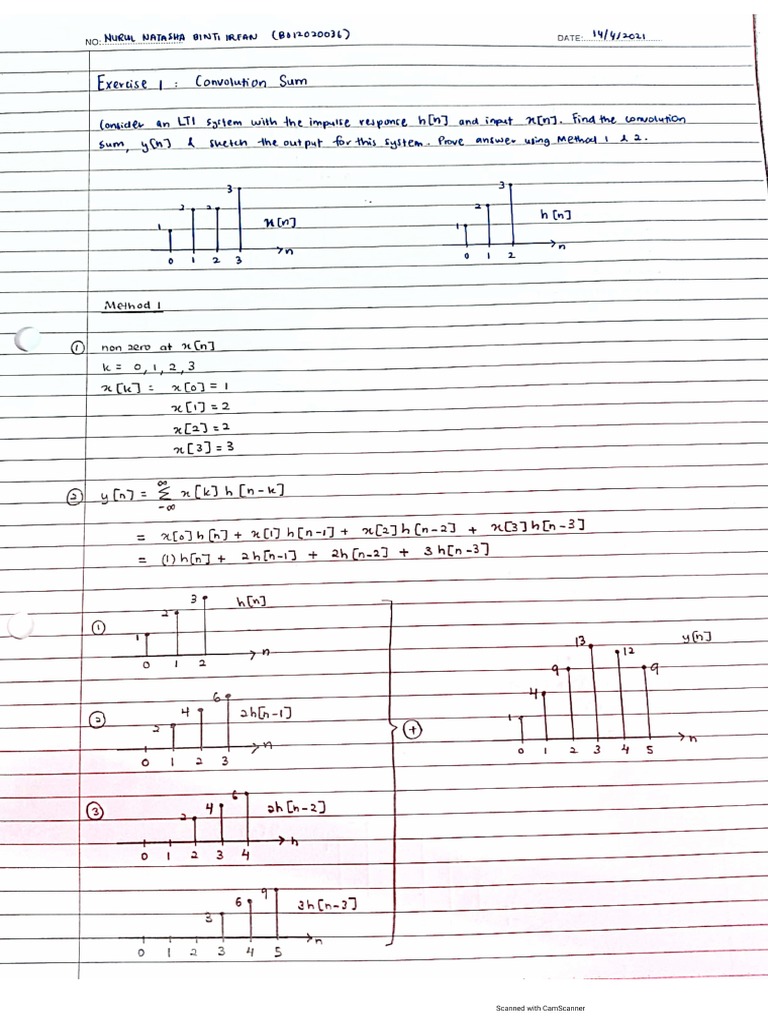 NO: NURUL NATASHA BINTI IRFAN (B012020036) DATE: 14/4/2021
Exercise 1 : Convolution Sum
Consider an LTI system with the impulse response h[n] and input x[n]. Find the convolution
sum, y[n] & sketch the output for this system. Prove answer using Method 1 & 2.
1 2 2 3 x[n] n
0 1 2 3
1 2 3 h[n] n
0 1 2
Method 1
① non zero at x[n]
k = 0, 1, 2, 3
x[k] = x[0] = 1
x[1] = 2
x[2] = 2
x[3] = 3
② y[n] = ∞ Σ -∞ x[k] h[n-k]
= x[0]h[n] + x[1]h[n-1] + x[2]h[n-2] + x[3]h[n-3]
= (1)h[n] + 2h[n-1] + 2h[n-2] + 3h[n-3]
① 1 2 3 h[n] n
0 1 2
② 2 4 6 2h[n-1] n
0 1 2 3
③ 2 4 6 2h[n-2] n
0 1 2 3 4
3 6 9 3h[n-3] n
0 1 2 3 4 5
+
1 4 9 13 12 9 y[n] n
0 1 2 3 4 5
Scanned with CamScanner